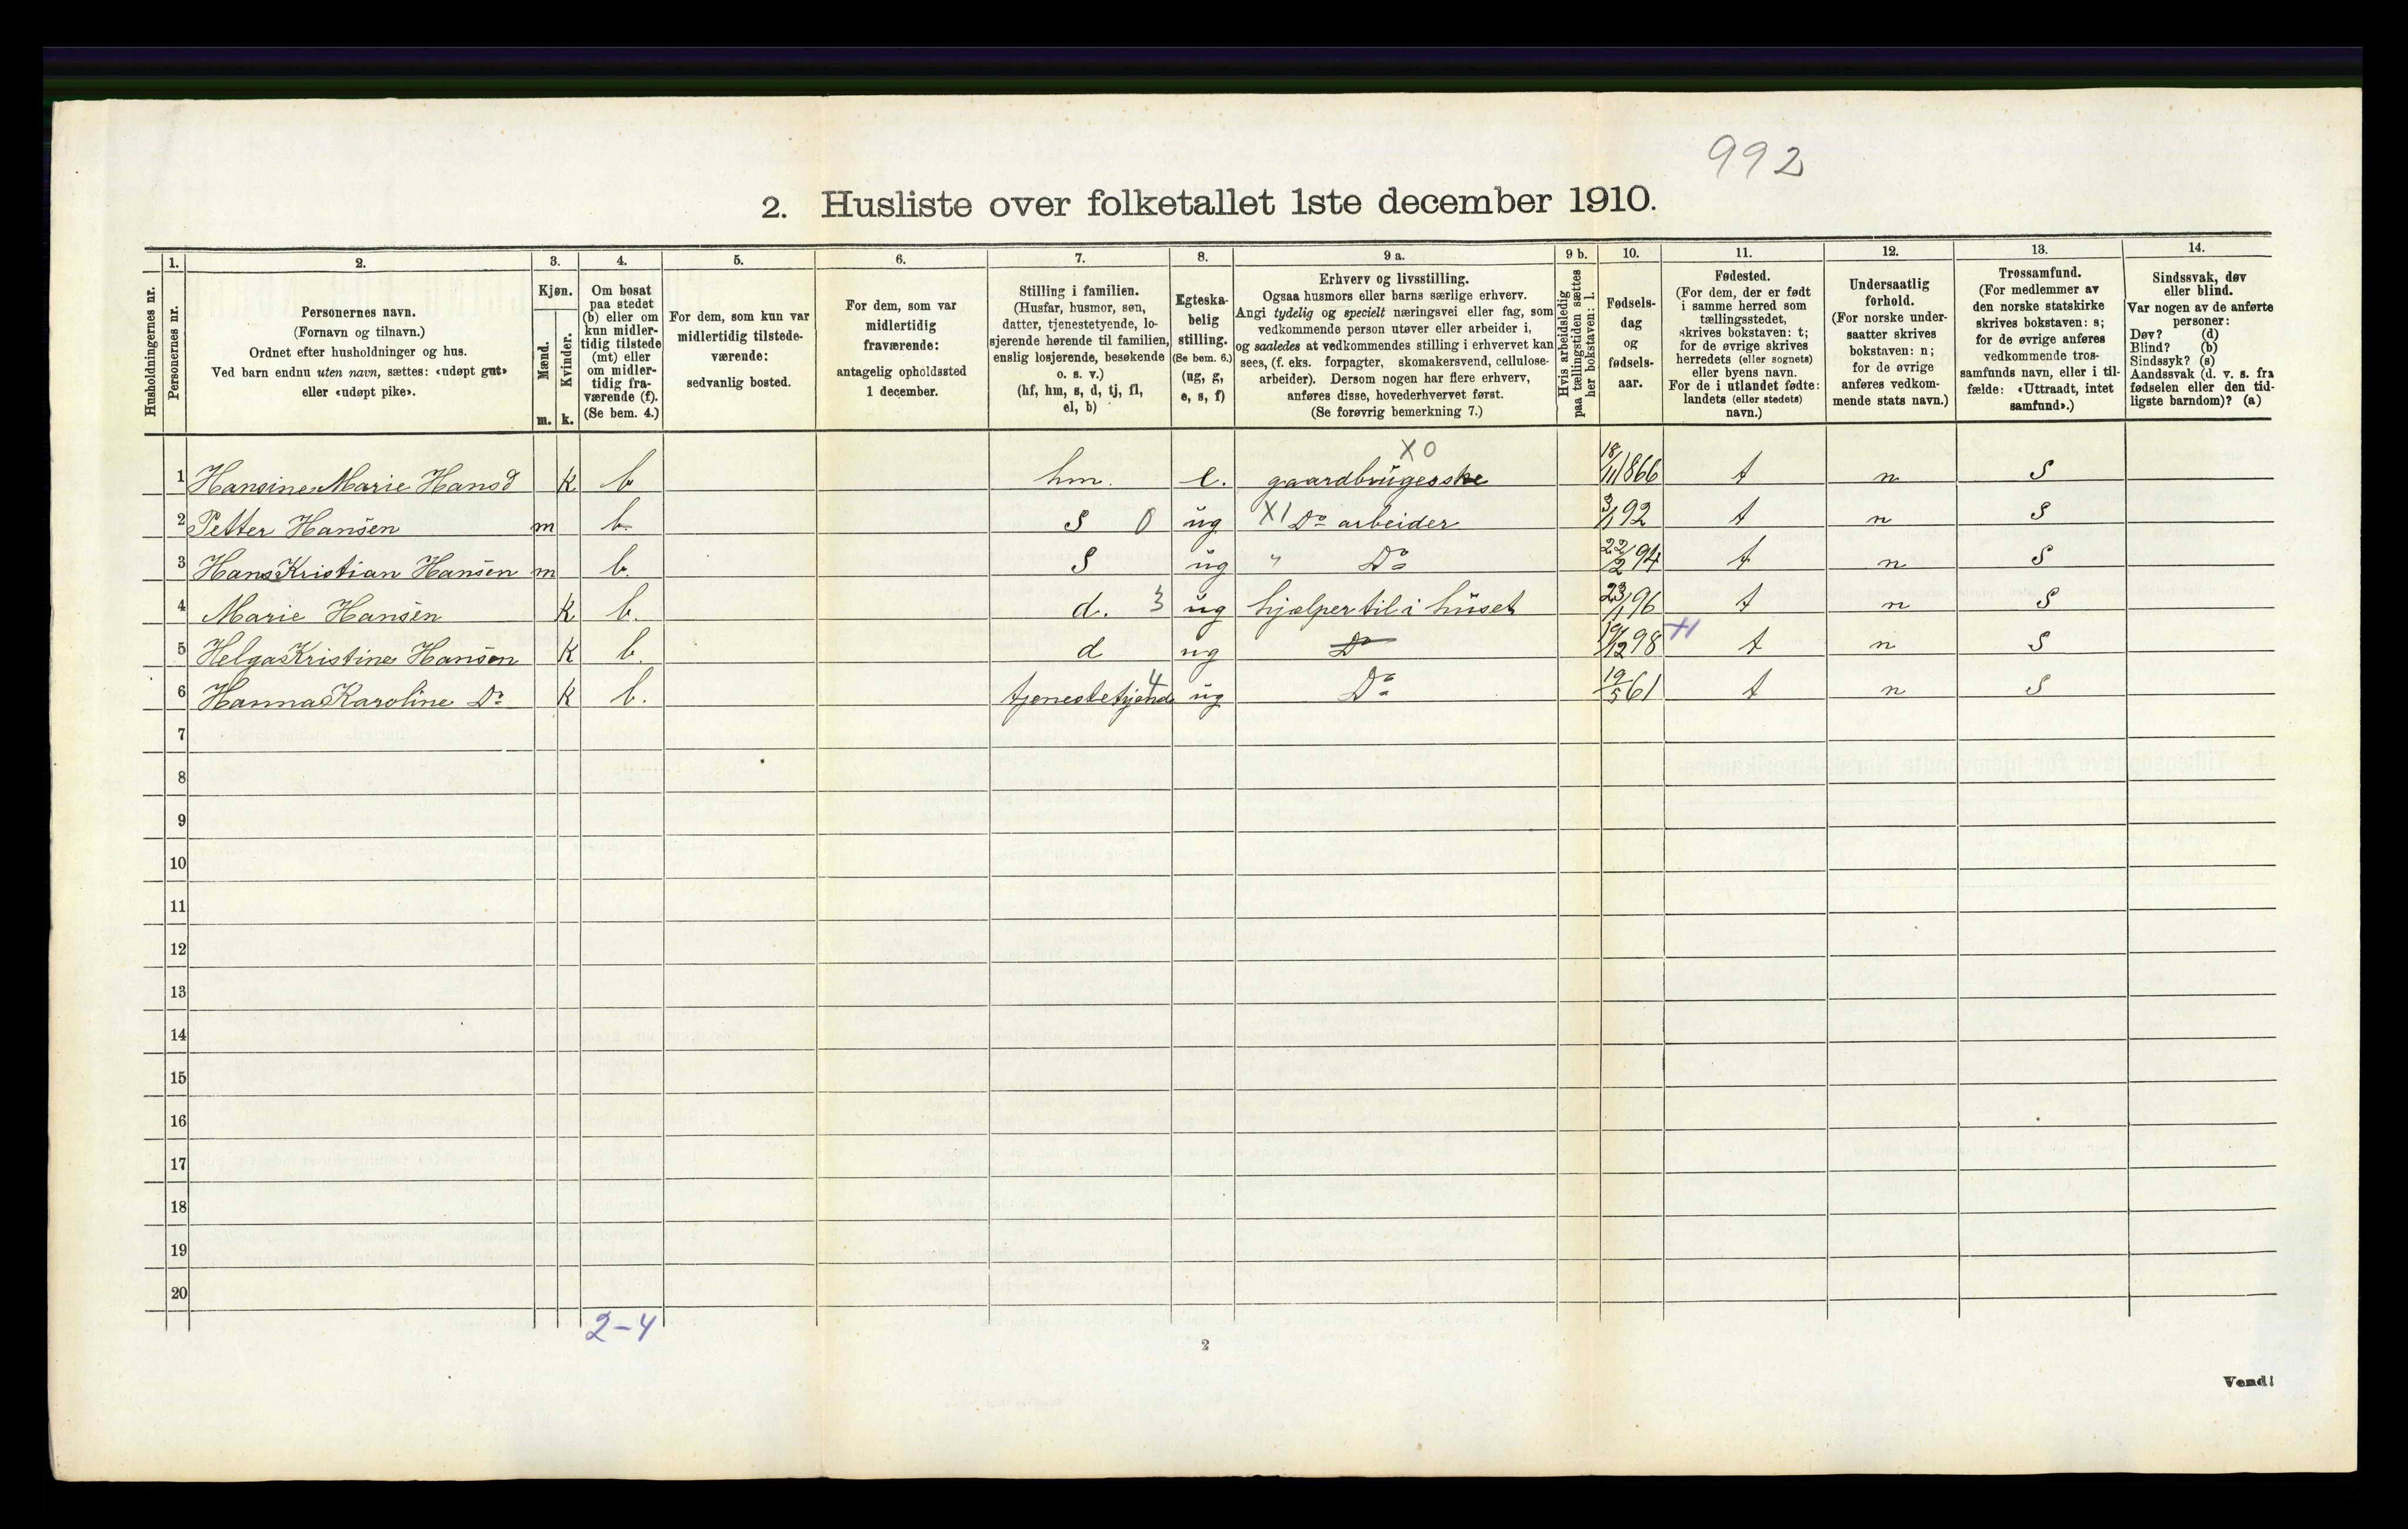 992
2. Husliste over folketallet 1ste december 1910.
Husholdningernes nr.
1.
Personernes nr.
2.
Personernes navn.
(Fornavn og tilnavn.)
Ordnet efter husholdninger og hus.
Ved barn endnu uten navn, sættes: «udøpt gut»
eller «udøpt pike».
3.
Kjøn.
Mænd.
Kvinder.
m. k.
4.
Om bosat
paa stedet
(b) eller om
kun midler-
tidig tilstede
(mt) eller
om midler-
tidig fra-
værende (f).
(Se bem. 4.)
5.
For dem, som kun var
midlertidig tilstede-
værende:
sedvanlig bosted.
6.
For dem, som var
midlertidig
fraværende:
antagelig opholdssted
1 december.
7.
Stilling i familien.
(Husfar, husmor, søn,
datter, tjenestetyende, lo-
sjerende hørende til familien,
enslig losjerende, besøkende
o. s. v.)
(hf, hm, s, d, tj, fl,
el, b)
8.
Egteska-
belig
stilling.
(Se bem. 6.)
(ug, g,
e, s, f)
9 a.
Erhverv og livsstilling.
Ogsaa husmors eller barns særlige erhverv.
Angi tydelig og specielt næringsvei eller fag, som
vedkommende person utøver eller arbeider i,
og saaledes at vedkommendes stilling i erhvervet kan
sees, (f. eks. forpagter, skomakersvend, cellulose-
arbeider). Dersom nogen har flere erhverv,
anføres disse, hovederhvervet først.
(Se forøvrig bemerkning 7.)
9 b.
Hvis arbeidsledig
paa tællingstiden sættes
her bokstaven: l.
10.
Fødsels-
dag
og
fødsels-
aar.
11.
Fødested.
(For dem, der er født
i samme herred som
tællingsstedet,
skrives bokstaven: t;
for de øvrige skrives
herredets (eller sognets)
eller byens navn.
For de i utlandet fødte:
landets (eller stedets)
navn.)
12.
Undersaatlig
forhold.
(For norske under-
saatter skrives
bokstaven: n;
for de øvrige
anføres vedkom-
mende stats navn.)
13.
Trossamfund.
(For medlemmer av
den norske statskirke
skrives bokstaven: s;
for de øvrige anføres
vedkommende tros-
samfunds navn, eller i til-
fælde: «Uttraadt, intet
samfund».)
14.
Sindssvak, døv
eller blind.
Var nogen av de anførte
personer:
Døv? (d)
Blind? (b)
Sindssyk? (s)
Aandssvak (d. v. s. fra
fødselen eller den tid-
ligste barndom)? (a)
X0
1 Hansine Marie Hansd K b hm. e. gaardbrugerske 18/11 1866 t n S
2 Petter Hansen m b. S 0 ug X1 Do arbeider 3/1 92 t n S
3 Hans Kristian Hansen m b. S ug " Do 22/2 94 t n S
4 Marie Hansen K b. d. 3 ug hjælper til i huset 23/1 96 t n S
5 Helga Kristine Hansen K b. d ug Do 19/12 98 t n S
6 Hanna Karoline Do K b. tjenestetyende 4 ug Do 19/5 61 t n S
7
8
9
10
11
12
13
14
15
16
17
18
19
20
2-4
2
Vend!